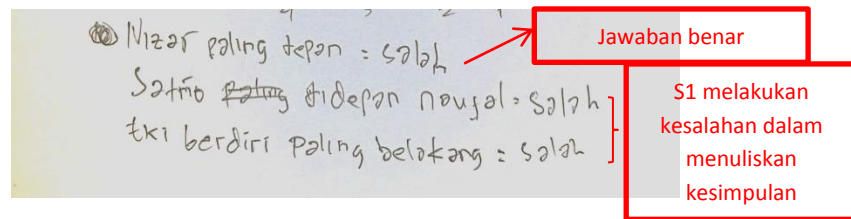 Nizar paling depan = salah
Satrio paling didepan noufal = salah
Eki berdiri paling belakang = salah
Jawaban benar
S1 melakukan
kesalahan dalam
menuliskan
kesimpulan